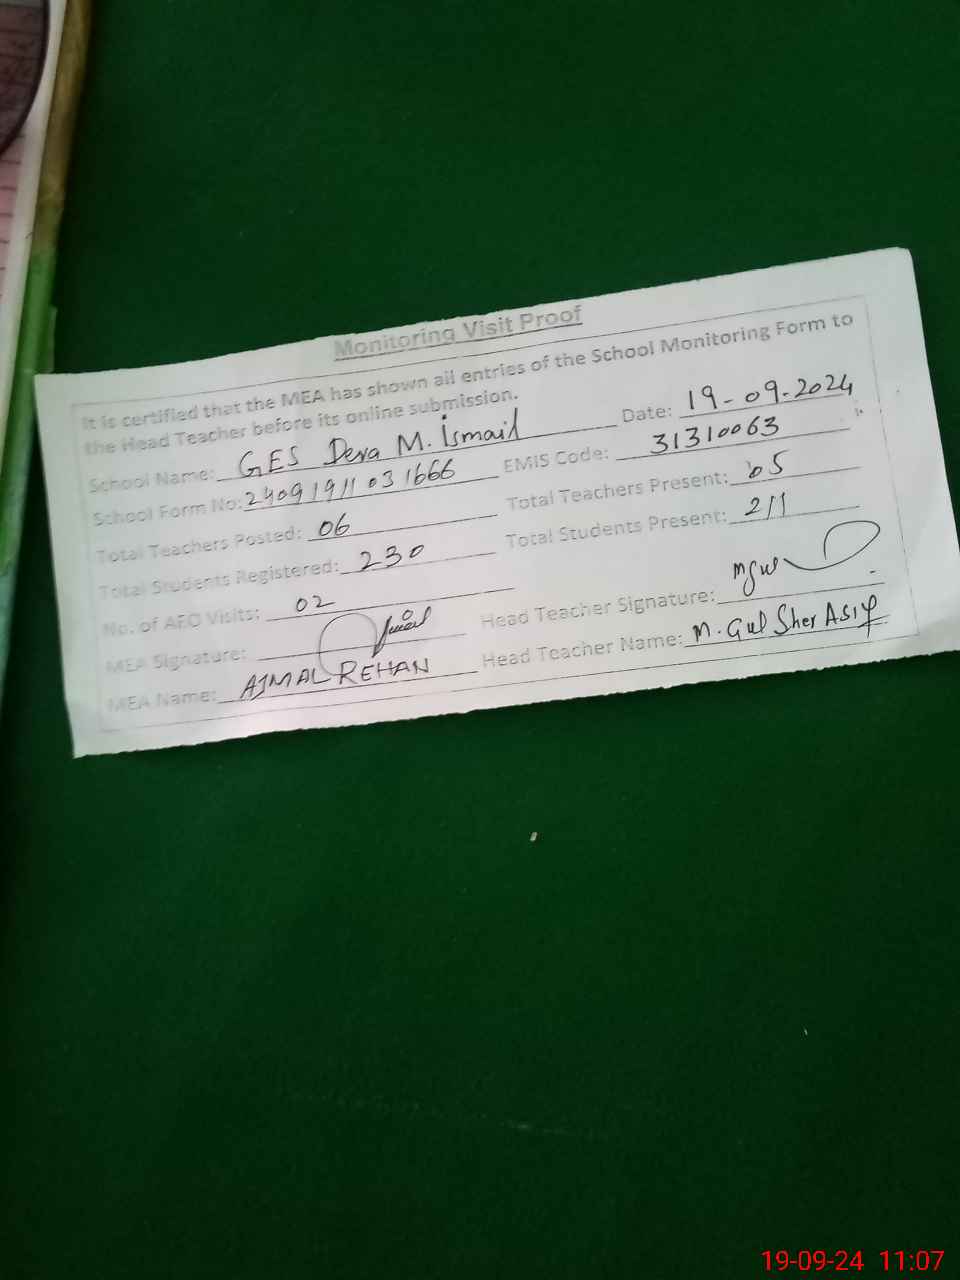 Monitoring Visit Proof
It is certified that the MEA has shown all entries of the School Monitoring Form to
the Head Teacher before its online submission.
Date: 19-09-2024
School Name: GES Dera M. Ismail
EMIS Code: 31310063
School Form No: 24091911031666
Total Teachers Present: 05
Total Teachers Posted: 06
Total Students Present: 211
Total Students Registered: 230
No. of AEO Visits: 02
Head Teacher Signature:
MEA Signature:
Head Teacher Name: M. Gul Sher Asif
MEA Name: AJMAL REHAN
19-09-24 11:07